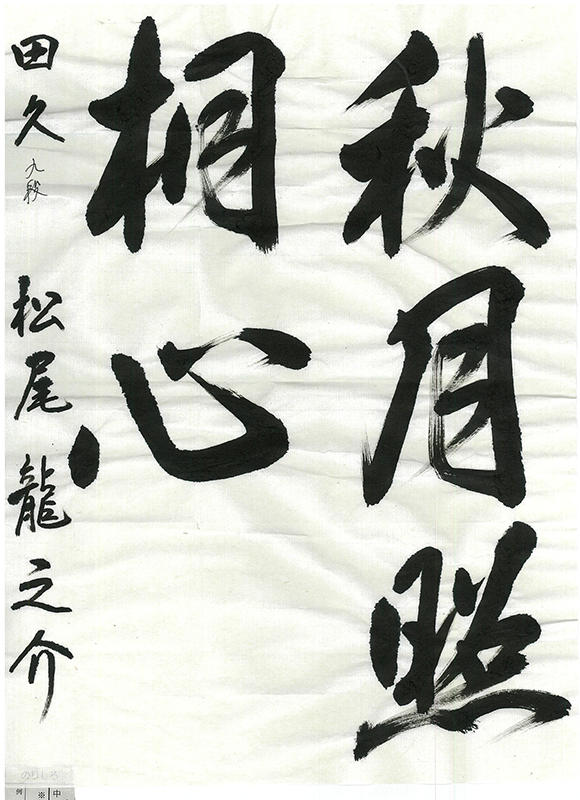 秋月照
相心
田久 九段 松尾龍之介
のりしろ
例 ※ 中